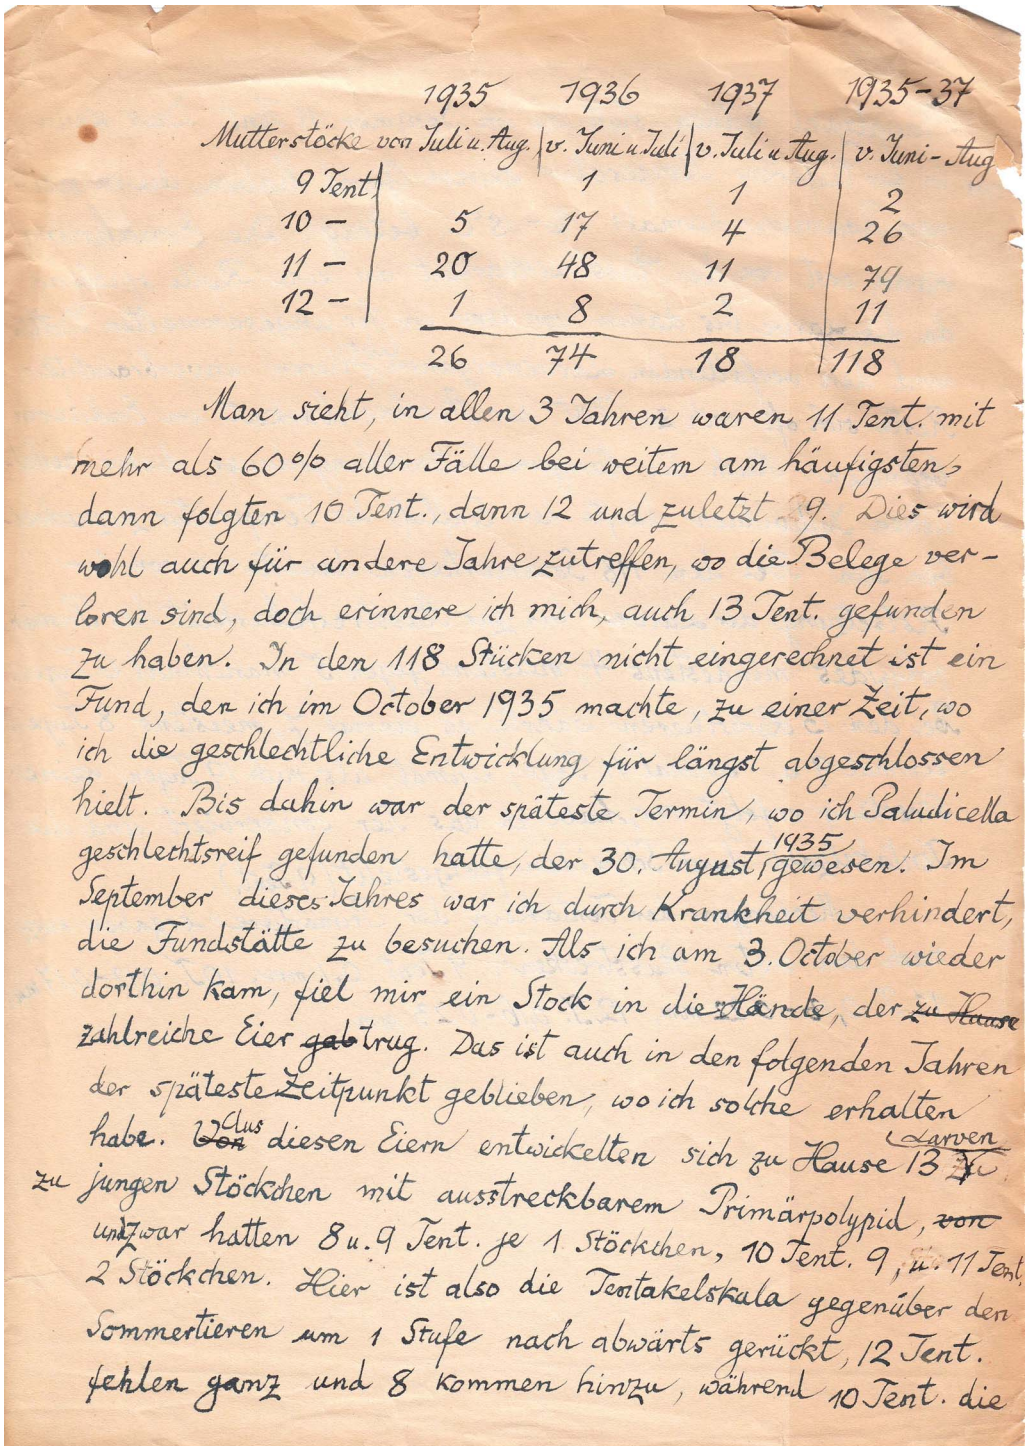 1935 1936 1937 1935-37
Mutterstöcke von Juli u. Aug. | v. Juni u Juli | v. Juli u Aug. | v. Juni - Aug
9 Tent. 1 1 2
10 — 5 17 4 26
11 — 20 48 11 79
12 — 1 8 2 11
26 74 18 118
Man sieht, in allen 3 Jahren waren 11 Tent. mit
mehr als 60% aller Fälle bei weitem am häufigsten,
dann folgten 10 Tent., dann 12 und zuletzt 9. Dies wird
wohl auch für andere Jahre zutreffen, wo die Belege ver-
loren sind, doch erinnere ich mich, auch 13 Tent. gefunden
zu haben. In den 118 Stücken nicht eingerechnet ist ein
Fund, den ich im October 1935 machte, zu einer Zeit, wo
ich die geschlechtliche Entwicklung für längst abgeschlossen
hielt. Bis dahin war der späteste Termin, wo ich Paludicella
geschlechtsreif gefunden hatte, der 30. August 1935 gewesen. Im
September dieses Jahres war ich durch Krankheit verhindert,
die Fundstätte zu besuchen. Als ich am 3. October wieder
dorthin kam, fiel mir ein Stock in die Hände, der zu Hause
zahlreiche Eier gab trug. Das ist auch in den folgenden Jahren
der späteste Zeitpunkt geblieben, wo ich solche erhalten
habe. Von Aus diesen Eiern entwickelten sich zu Hause 13 Larven zu
zu jungen Stöckchen mit ausstreckbarem Primärpolypid, von
und zwar hatten 8 u. 9 Tent. je 1 Stöckchen, 10 Tent. 9, u. 11 Tent.
2 Stöckchen. Hier ist also die Tentakelskala gegenüber den
Sommertieren um 1 Stufe nach abwärts gerückt, 12 Tent.
fehlen ganz und 8 kommen hinzu, während 10 Tent. die